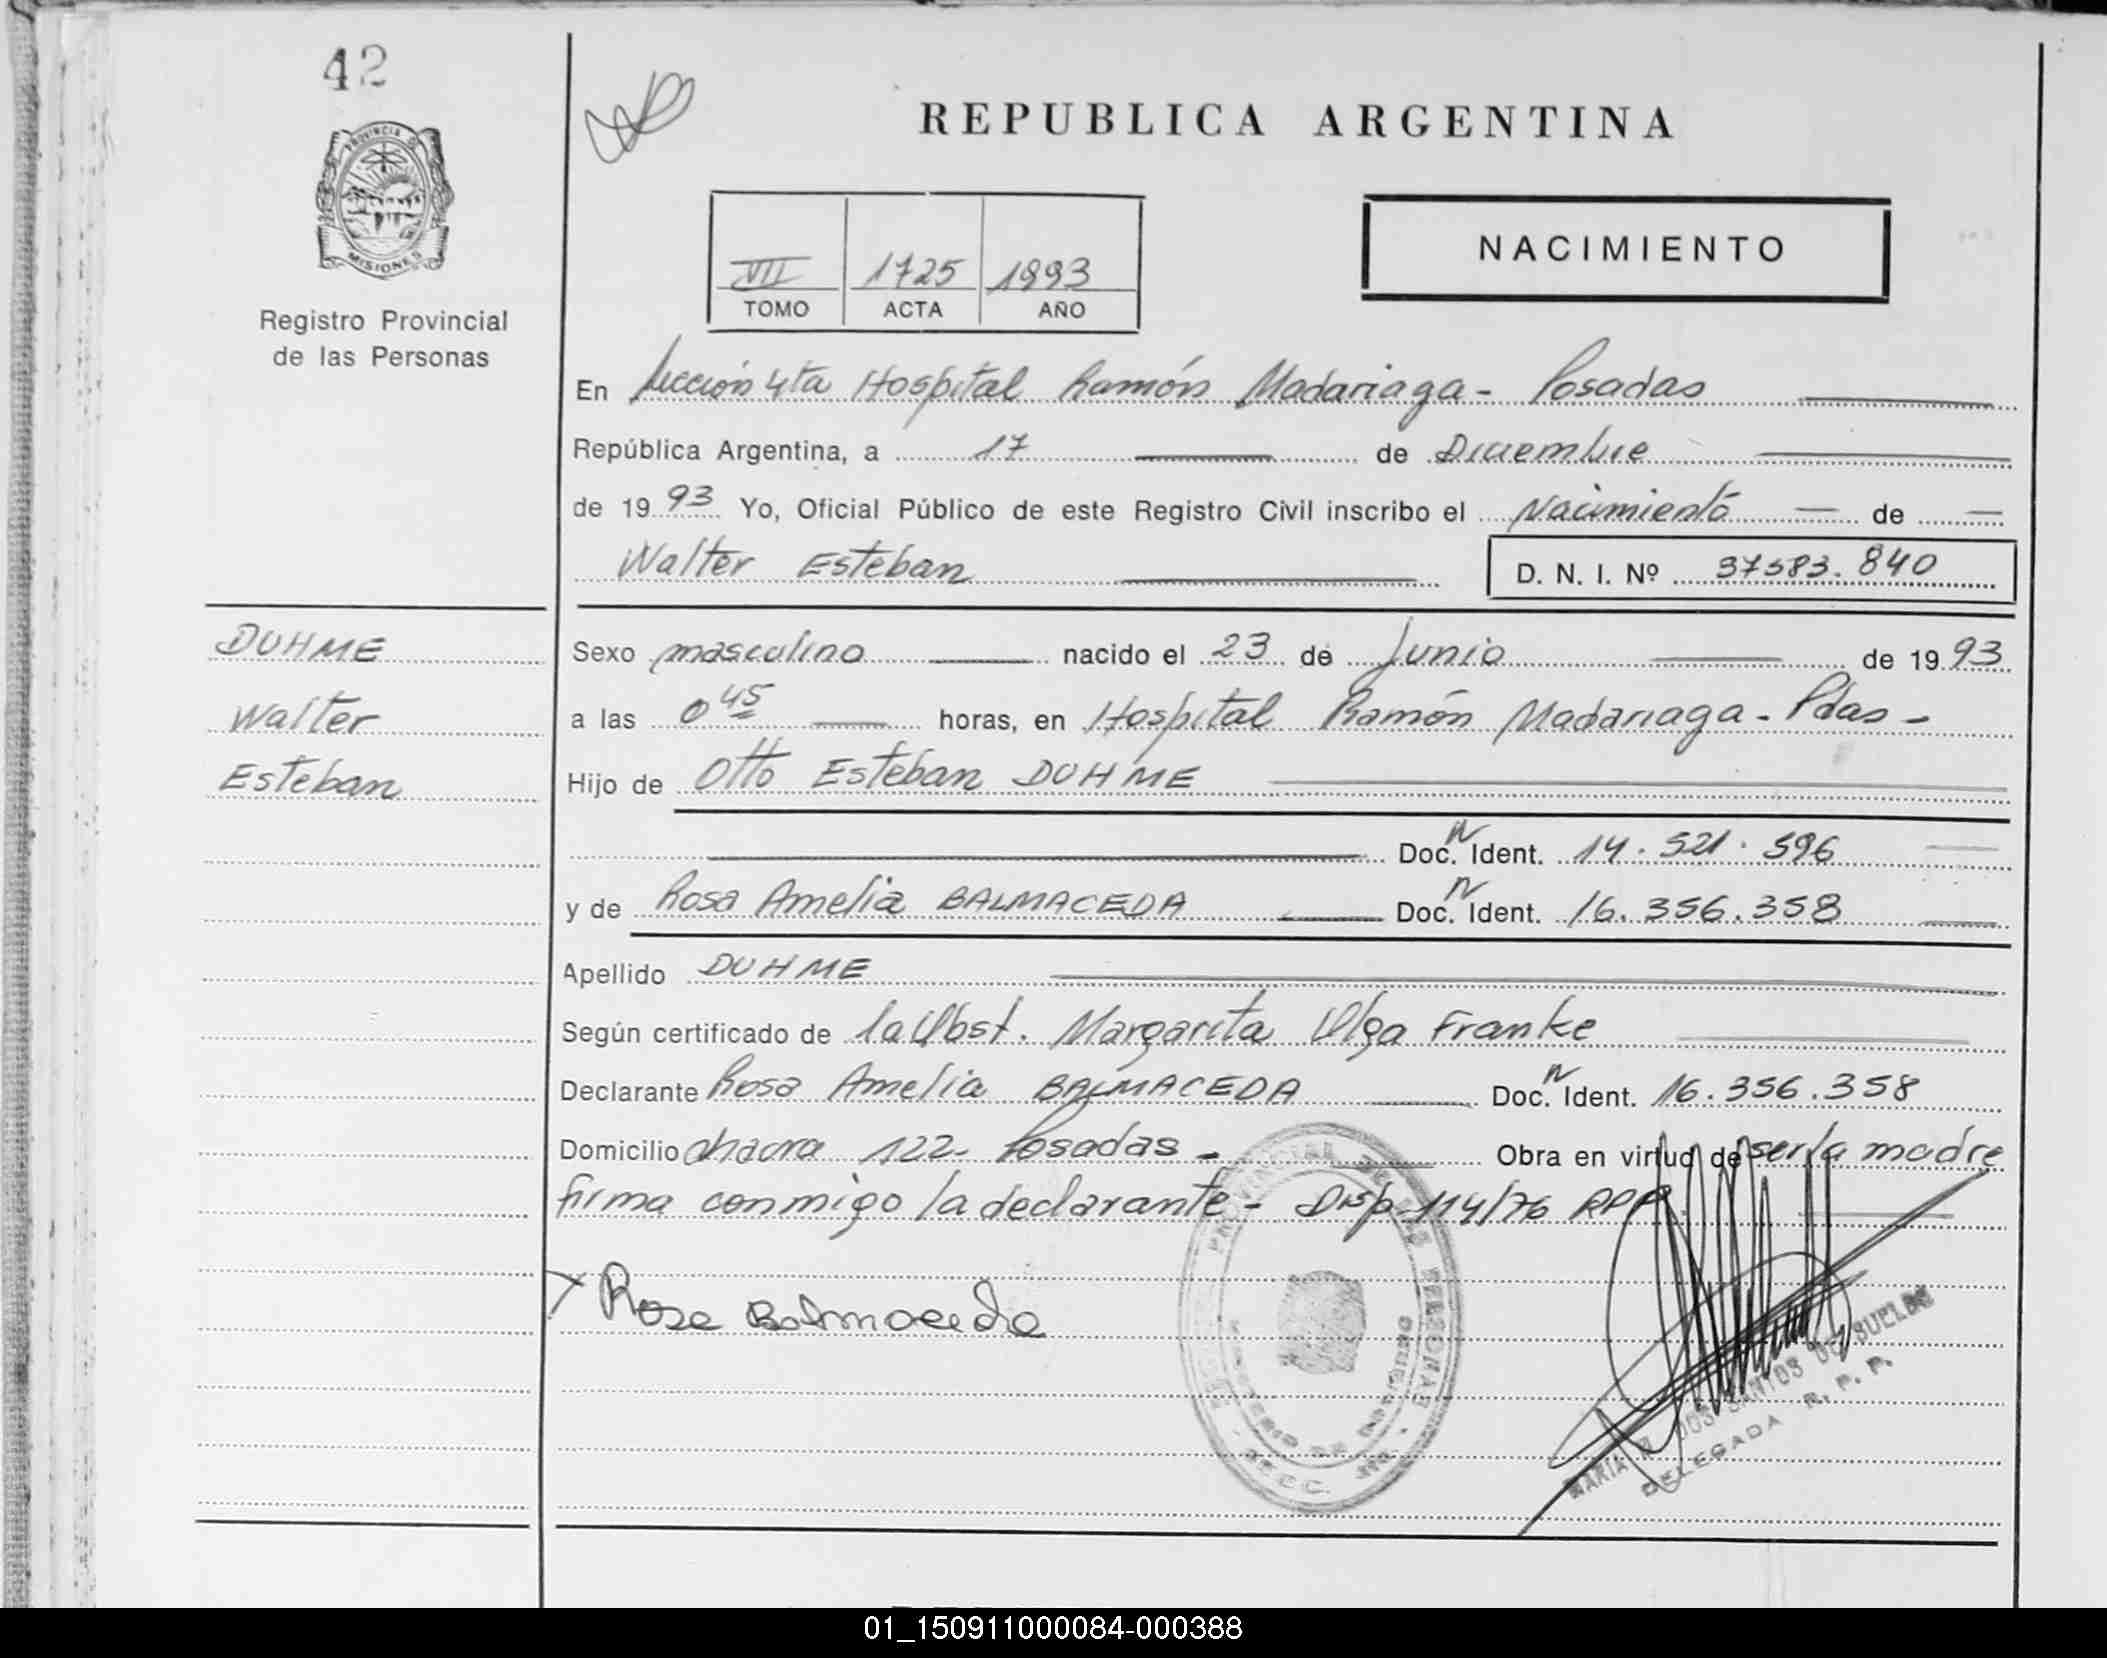 42
PROVINCIA DE
MISIONES
Registro Provincial
de las Personas
REPUBLICA ARGENTINA
VII 1725 1993
TOMO ACTA AÑO
NACIMIENTO
En Sección 4ta Hospital Ramón Madariaga - Posadas
República Argentina, a 17 de Diciembre
de 1993 Yo, Oficial Público de este Registro Civil inscribo el Nacimiento de
Walter Esteban D. N. I. Nº 37583.840
DUHME
Walter
Esteban
Sexo masculino nacido el 23 de Junio de 1993
a las 0 45 horas, en Hospital Ramón Madariaga - Pdas -
Hijo de Otto Esteban DUHME
Doc. N Ident. 14.521.596
y de Rosa Amelia BALMACEDA Doc. N Ident. 16.356.358
Apellido DUHME
Según certificado de la Obst. Margarita Olga Franke
Declarante Rosa Amelia BALMACEDA Doc. N Ident. 16.356.358
Domicilio chacra 122 - Posadas - Obra en virtud de ser la madre
firma conmigo la declarante - Disp 114/76 RPP.
x Rosa Balmaceda
PROVINCIAL DE LAS PERSONAS
MINISTERIO DE GOBIERNO
MARIA DOS SANTOS DE SUELDE
DELEGADA R. P. P.
01_150911000084-000388